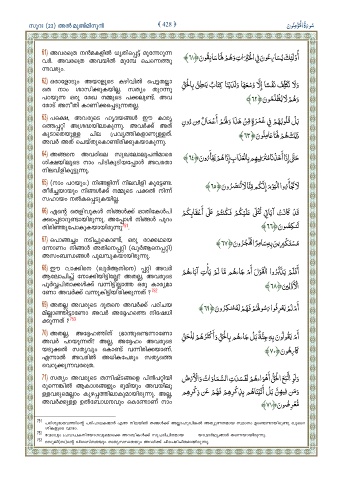 സൂറ (23) അൽ മുഅ്മിനൂൻ
﴾ 428 ﴿
سُورَةُ الْمُؤْمِنُونَ
61) അവരത്രെ നന്മകളിൽ ധൃതിപ്പെട്ട് മുന്നേറുന്നവർ. അവരത്രെ അവയിൽ മുമ്പേ ചെന്നെത്തുന്നവരും.
أُوْلَٰئِكَ يُسَارِعُونَ فِي الْخَيْرَاتِ وَهُمْ لَهَا سَابِقُونَ ﴿٦١﴾
62) ഒരാളോടും അയാളുടെ കഴിവിൽ പെട്ടതല്ലാതെ നാം ശാസിക്കുകയില്ല. സത്യം തുറന്നു പറയുന്ന ഒരു രേഖ നമ്മുടെ പക്കലുണ്ട്. അവരോട് അനീതി കാണിക്കപ്പെടുന്നതല്ല.
وَلَا نُكَلِّفُ نَفْسًا إِلَّا وُسْعَهَا وَلَدَيْنَا كِتَابٌ يَنطِقُ بِالْحَقِّ وَهُمْ لَا يُظْلَمُونَ ﴿٦٢﴾
63) പക്ഷെ, അവരുടെ ഹൃദയങ്ങൾ ഈ കാര്യത്തെപ്പറ്റി അശ്രദ്ധയിലാകുന്നു. അവർക്ക് അത് കൂടാതെയുള്ള ചില പ്രവൃത്തികളാണുള്ളത്. അവർ അത് ചെയ്തുകൊണ്ടിരിക്കുകയാകുന്നു.
بَلْ قُلُوبُهُمْ فِي غَمْرَةٍ مِّنْ هَٰذَا وَلَهُمْ أَعْمَالٌ مِّن دُونِ ذَٰلِكَ هُمْ لَهَا عَامِلُونَ ﴿٦٣﴾
64) അങ്ങനെ അവരിലെ സുഖലോലുപന്മാരെ ശിക്ഷയിലൂടെ നാം പിടികൂടിയപ്പോൾ അവരതാ നിലവിളികൂട്ടുന്നു.
حَتَّىٰ إِذَا أَخَذْنَا مُتْرَفِيهِم بِالْعَذَابِ إِذَا هُمْ يَجْأَرُونَ ﴿٦٤﴾
65) (നാം പറയും:) നിങ്ങളിന്ന് നിലവിളി കൂട്ടേണ്ട. തീർച്ചയായും നിങ്ങൾക്ക് നമ്മുടെ പക്കൽ നിന്ന് സഹായം നൽകപ്പെടുകയില്ല.
لَا تَجْأَرُوا الْيَوْمَ إِنَّكُم مِّنَّا لَا تُنصَرُونَ ﴿٦٥﴾
66) എന്റെ തെളിവുകൾ നിങ്ങൾക്ക് ഓതികേൾപിക്കപ്പെടാറുണ്ടായിരുന്നു. അപ്പോൾ നിങ്ങൾ പുറം തിരിഞ്ഞുപോകുകയായിരുന്നു
قَدْ كَانَتْ آيَاتِي تُتْلَىٰ عَلَيْكُمْ فَكُنتُمْ عَلَىٰ أَعْقَابِكُمْ تَنكِصُونَ ﴿٦٦﴾
67) പൊങ്ങച്ചം നടിച്ചുകൊണ്ട്, ഒരു രാക്കഥയെന്നോണം നിങ്ങൾ അതിനെപ്പറ്റി (ഖുർആനെപ്പറ്റി) അസംബന്ധങ്ങൾ പുലമ്പുകയായിരുന്നു.
مُسْتَكْبِرِينَ بِهِ سَامِرًا تَهْجُرُونَ ﴿٦٧﴾
68) ഈ വാക്കിനെ (ഖുർആനിനെ) പ്പറ്റി അവർ ആലോചിച്ച് നോക്കിയിട്ടില്ലേ? അതല്ല, അവരുടെ പൂർവ്വപിതാക്കൾക്ക് വന്നിട്ടില്ലാത്ത ഒരു കാര്യമാണോ അവർക്ക് വന്നുകിട്ടിയിരിക്കുന്നത് ?
أَفَلَمْ يَدَّبَّرُوا الْقَوْلَ أَمْ جَاءَهُم مَّا لَمْ يَأْتِ آبَاءَهُمُ الْأَوَّلِينَ ﴿٦٨﴾
69) അതല്ല അവരുടെ ദൂതനെ അവർക്ക് പരിചയമില്ലാഞ്ഞിട്ടാണോ അവർ അദ്ദേഹത്തെ നിഷേധിക്കുന്നത് ?
أَمْ لَمْ يَعْرِفُوا رَسُولَهُمْ فَهُمْ لَهُ مُنكِرُونَ ﴿٦٩﴾
70) അതല്ല, അദ്ദേഹത്തിന് ഭ്രാന്തുണ്ടെന്നാണോ അവർ പറയുന്നത്? അല്ല, അദ്ദേഹം അവരുടെയടുക്കൽ സത്യവും കൊണ്ട് വന്നിരിക്കയാണ്. എന്നാൽ അവരിൽ അധികപേരും സത്യത്തെ വെറുക്കുന്നവരത്രെ.
أَمْ يَقُولُونَ بِهِ جِنَّةٌ بَلْ جَاءَهُم بِالْحَقِّ وَأَكْثَرُهُمْ لِلْحَقِّ كَارِهُونَ ﴿٧٠﴾
71) സത്യം അവരുടെ തന്നിഷ്ടങ്ങളെ പിൻപറ്റിയിരുന്നെങ്കിൽ ആകാശങ്ങളും ഭൂമിയും അവയിലുള്ളവരുമെല്ലാം കുഴപ്പത്തിലാകുമായിരുന്നു. അല്ല, അവർക്കുള്ള ഉൽബോധനവും കൊണ്ടാണ് നാം
وَلَوِ اتَّبَعَ الْحَقُّ أَهْوَاءَهُمْ لَفَسَدَتِ السَّمَاوَاتُ وَالْأَرْضُ وَمَن فِيهِنَّ بَلْ أَتَيْنَاهُم بِذِكْرِهِمْ فَهُمْ عَن ذِكْرِهِم مُّعْرِضُونَ ﴿٧١﴾